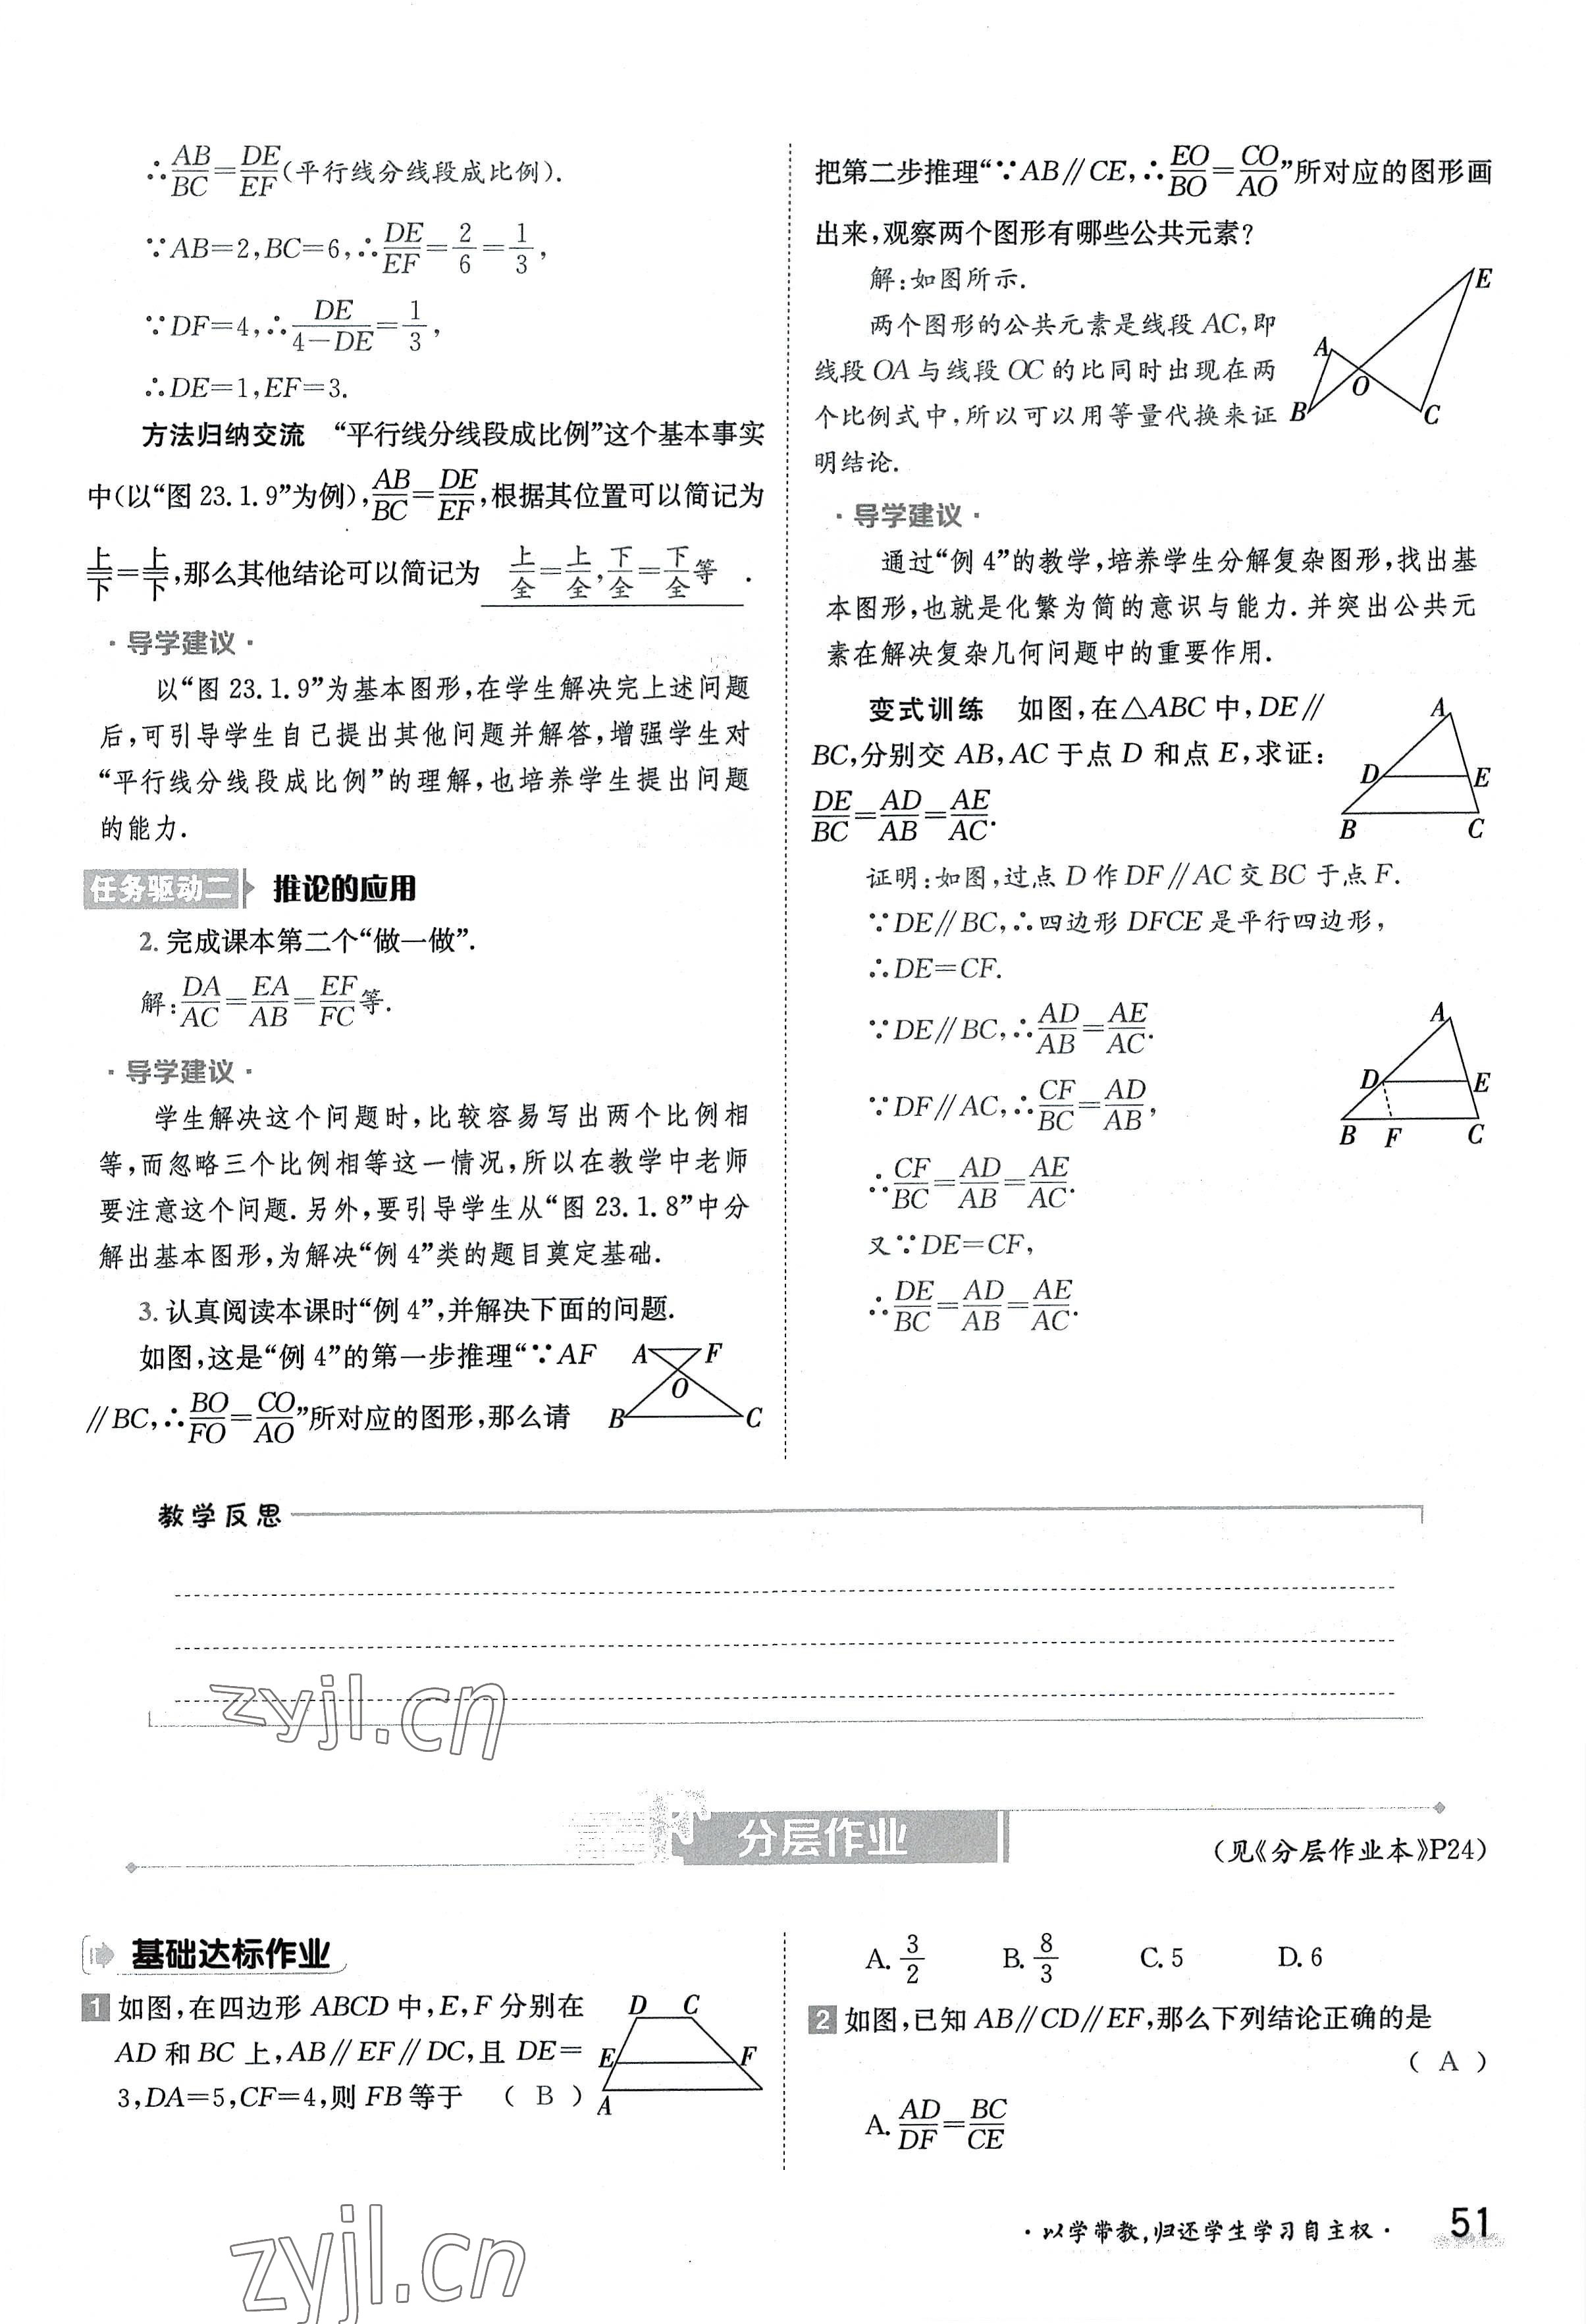 ∴AB/BC=DE/EF(平行线分线段成比例).
∵AB=2,BC=6,∴DE/EF=2/6=1/3,
∵DF=4,∴DE/(4-DE)=1/3,
∴DE=1,EF=3.
方法归纳交流 “平行线分线段成比例”这个基本事实
中(以“图 23.1.9”为例),AB/BC=DE/EF,根据其位置可以简记为
上/下=上/下,那么其他结论可以简记为 上/全=上/全,下/全=下/全等 .
·导学建议·
以“图 23.1.9”为基本图形,在学生解决完上述问题
后,可引导学生自己提出其他问题并解答,增强学生对
“平行线分线段成比例”的理解,也培养学生提出问题
的能力.
任务驱动二 推论的应用
2. 完成课本第二个“做一做”.
解:DA/AC=EA/AB=EF/FC等.
·导学建议·
学生解决这个问题时,比较容易写出两个比例相
等,而忽略三个比例相等这一情况,所以在教学中老师
要注意这个问题.另外,要引导学生从“图 23.1.8”中分
解出基本图形,为解决“例 4”类的题目奠定基础.
3. 认真阅读本课时“例 4”,并解决下面的问题.
如图,这是“例 4”的第一步推理“∵AF
∥BC,∴BO/FO=CO/AO”所对应的图形,那么请
A F
O
B C
把第二步推理“∵AB∥CE,∴EO/BO=CO/AO”所对应的图形画
出来,观察两个图形有哪些公共元素?
解:如图所示.
两个图形的公共元素是线段 AC,即
线段 OA 与线段 OC 的比同时出现在两
个比例式中,所以可以用等量代换来证
明结论.
E
A
O
B C
·导学建议·
通过“例 4”的教学,培养学生分解复杂图形,找出基
本图形,也就是化繁为简的意识与能力.并突出公共元
素在解决复杂几何问题中的重要作用.
变式训练 如图,在△ABC 中,DE∥
BC,分别交 AB,AC 于点 D 和点 E,求证:
DE/BC=AD/AB=AE/AC.
A
D E
B C
证明:如图,过点 D 作 DF∥AC 交 BC 于点 F.
∵DE∥BC,∴四边形 DFCE 是平行四边形,
∴DE=CF.
∵DE∥BC,∴AD/AB=AE/AC.
∵DF∥AC,∴CF/BC=AD/AB,
∴CF/BC=AD/AB=AE/AC.
又∵DE=CF,
∴DE/BC=AD/AB=AE/AC.
A
D E
B F C
教学反思
zyjl.cn
分层作业
(见《分层作业本》P24)
基础达标作业
1 如图,在四边形 ABCD 中,E,F 分别在
AD 和 BC 上,AB∥EF∥DC,且 DE=
3,DA=5,CF=4,则 FB 等于 ( B )
D C
E F
A
A. 3/2 B. 8/3 C. 5 D. 6
2 如图,已知 AB∥CD∥EF,那么下列结论正确的是
( A )
A. AD/DF=BC/CE
·以学带教,归还学生学习自主权·
51
zyjl.cn